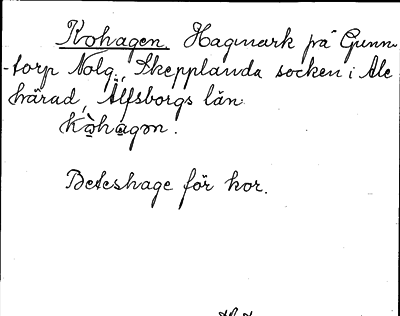 Kohagen. Hagmark på Gunn-
-torp Nolg., Skepplanda socken i Ale
härad, Älfsborgs län.
Kòhagən.
Beteshage för kor.